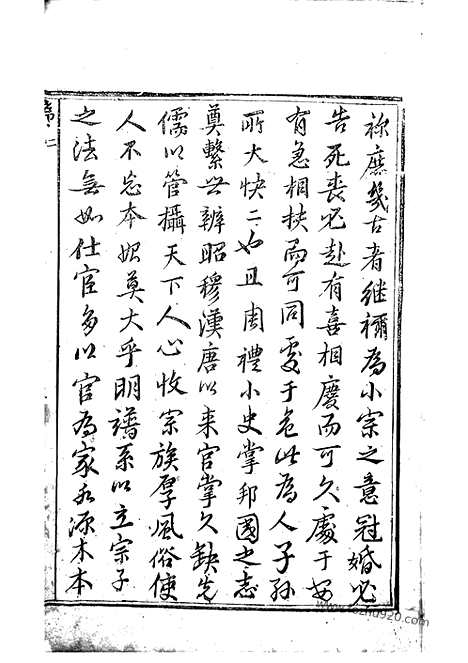 祢庶幾古者继禰為小宗之意冠婚必
告死喪必赴有喜相慶而可久處于安
有急相扶而可同憂于危此為人子孫
所大快二也且周禮小史掌邦國之志
奠繫世辨昭穆漢唐以来官掌久缺先
儒以管攝天下人心收宗族厚風俗使
人不忘本始莫大乎明譜系以立宗子
之法無如仕宦多以官為家水源木本